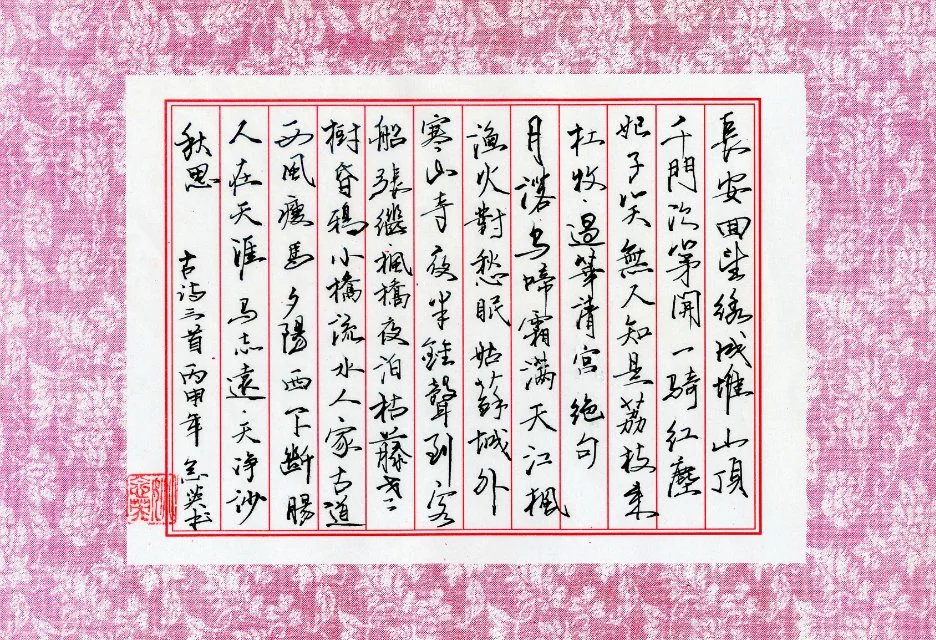 長安回望绣成堆山頂
千門次第開一騎紅塵
妃子笑無人知是荔枝来
杜牧·過華清宫绝句
月落·烏啼霜满天江楓
渔火對愁眠姑蘇城外
寒山寺夜半鐘聲到客
船張繼楓橋夜泊枯藤老
樹昏鴉小橋流水人家古道
西風瘦馬夕陽西下断腸
人在天涯马志遠·天净沙
秋思
古诗三首丙申年志英书